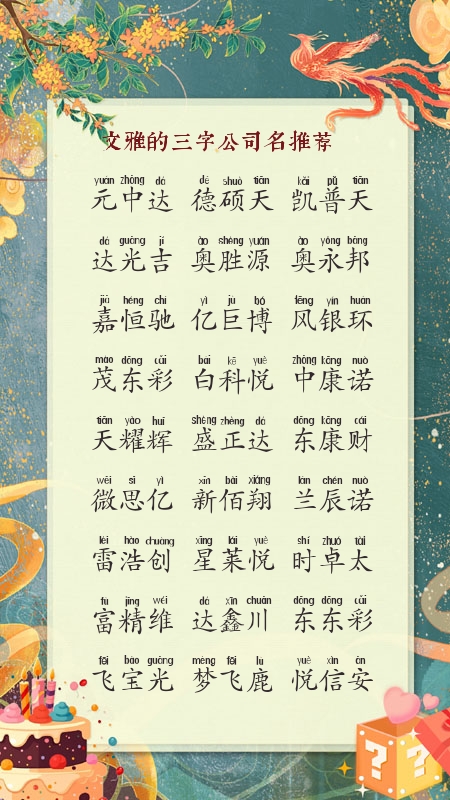 文雅的三字公司名推荐
yuán zhōng dá dé shuò tiān kǎi pǔ tiān
元中达 德硕天 凯普天
dá guāng jí ào shèng yuán ào yǒng bāng
达光吉 奥胜源 奥永邦
jiā héng chí yì jù bó fēng yín huán
嘉恒驰 亿巨博 风银环
mào dōng cǎi bái kē yuè zhōng kāng nuò
茂东彩 白科悦 中康诺
tiān yào huī shèng zhèng dá dōng kāng cái
天耀辉 盛正达 东康财
wēi sī yì xīn bǎi xiáng lán chén nuò
微思亿 新佰翔 兰辰诺
léi hào chuàng xīng lái yuè shí zhuó tài
雷浩创 星莱悦 时卓太
fù jīng wéi dá xīn chuān dōng dōng cǎi
富精维 达鑫川 东东彩
fēi bǎo guāng mèng fēi lù yuè xìn ān
飞宝光 梦飞鹿 悦信安
? ?